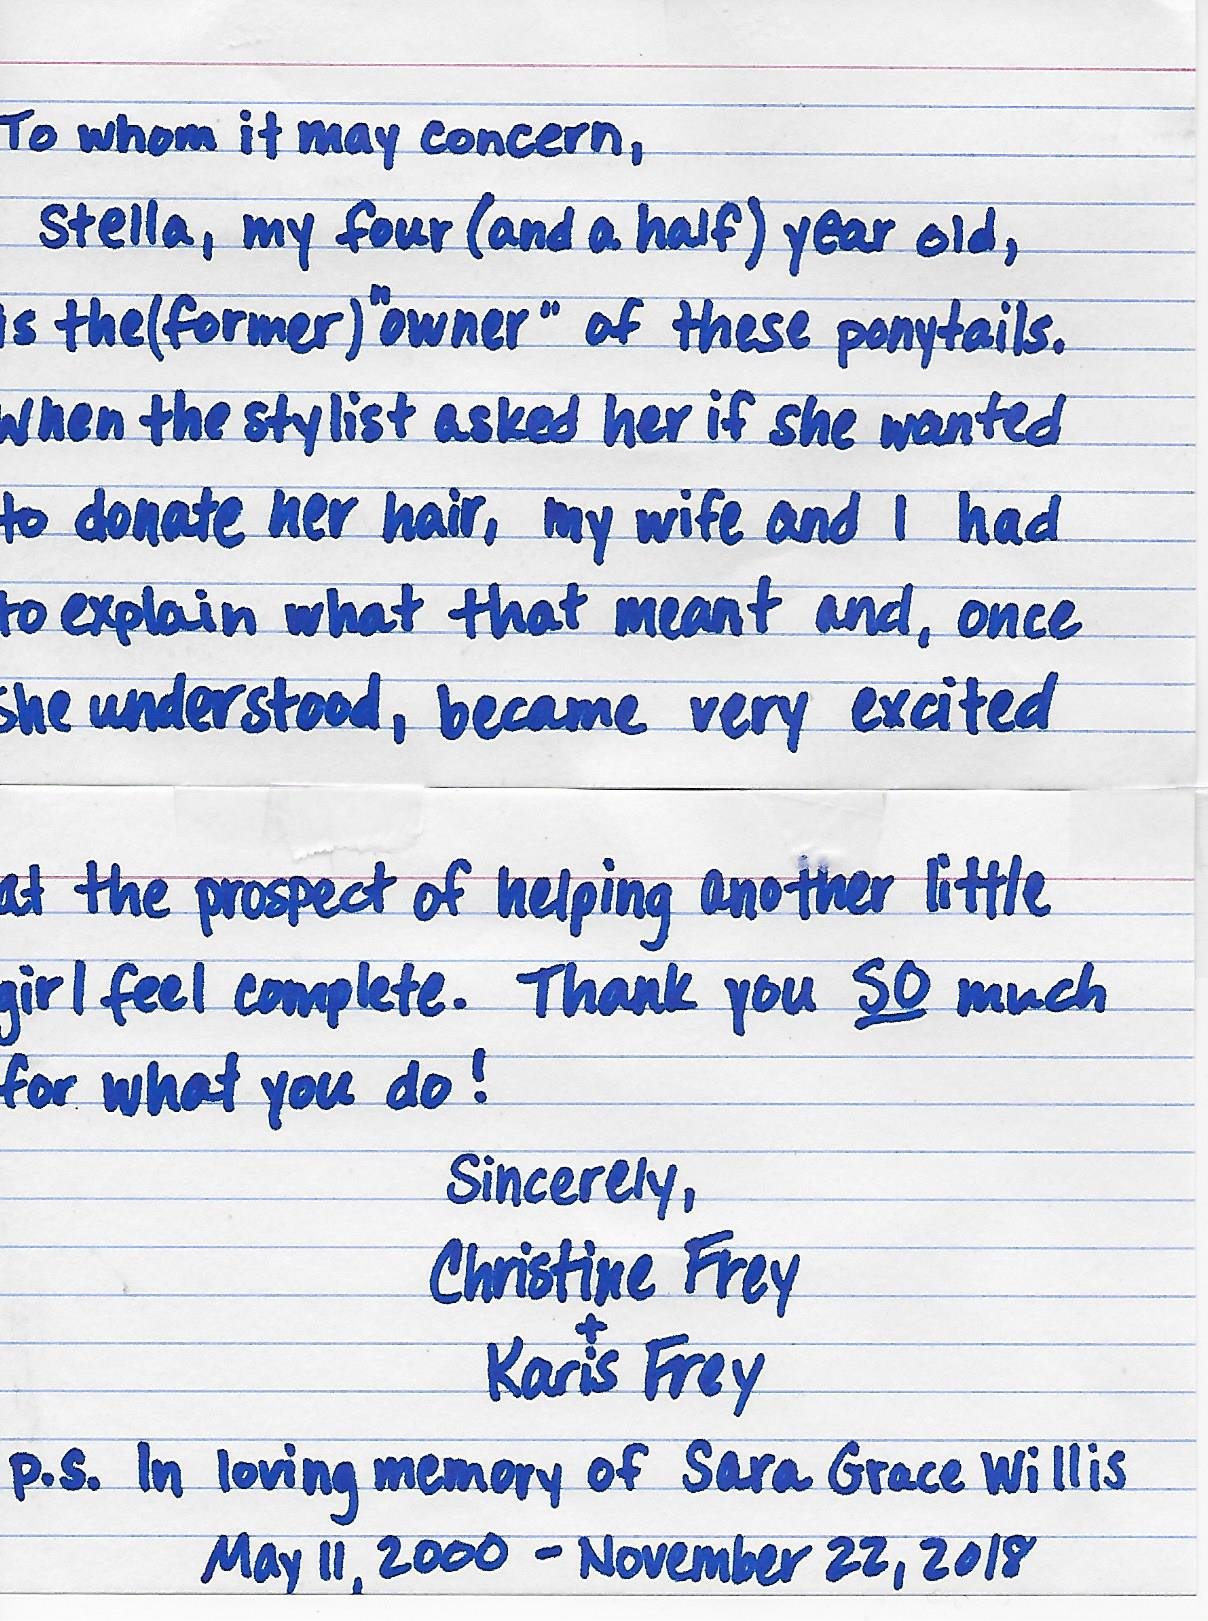 To whom it may concern,
Stella, my four (and a half) year old,
is the (former) "owner" of these ponytails.
When the stylist asked her if she wanted
to donate her hair, my wife and I had
to explain what that meant and, once
she understood, became very excited
at the prospect of helping another little
girl feel complete. Thank you SO much
for what you do!
Sincerely,
Christine Frey
+
Karis Frey
p.s. In loving memory of Sara Grace Willis
May 11, 2000 - November 22, 2018